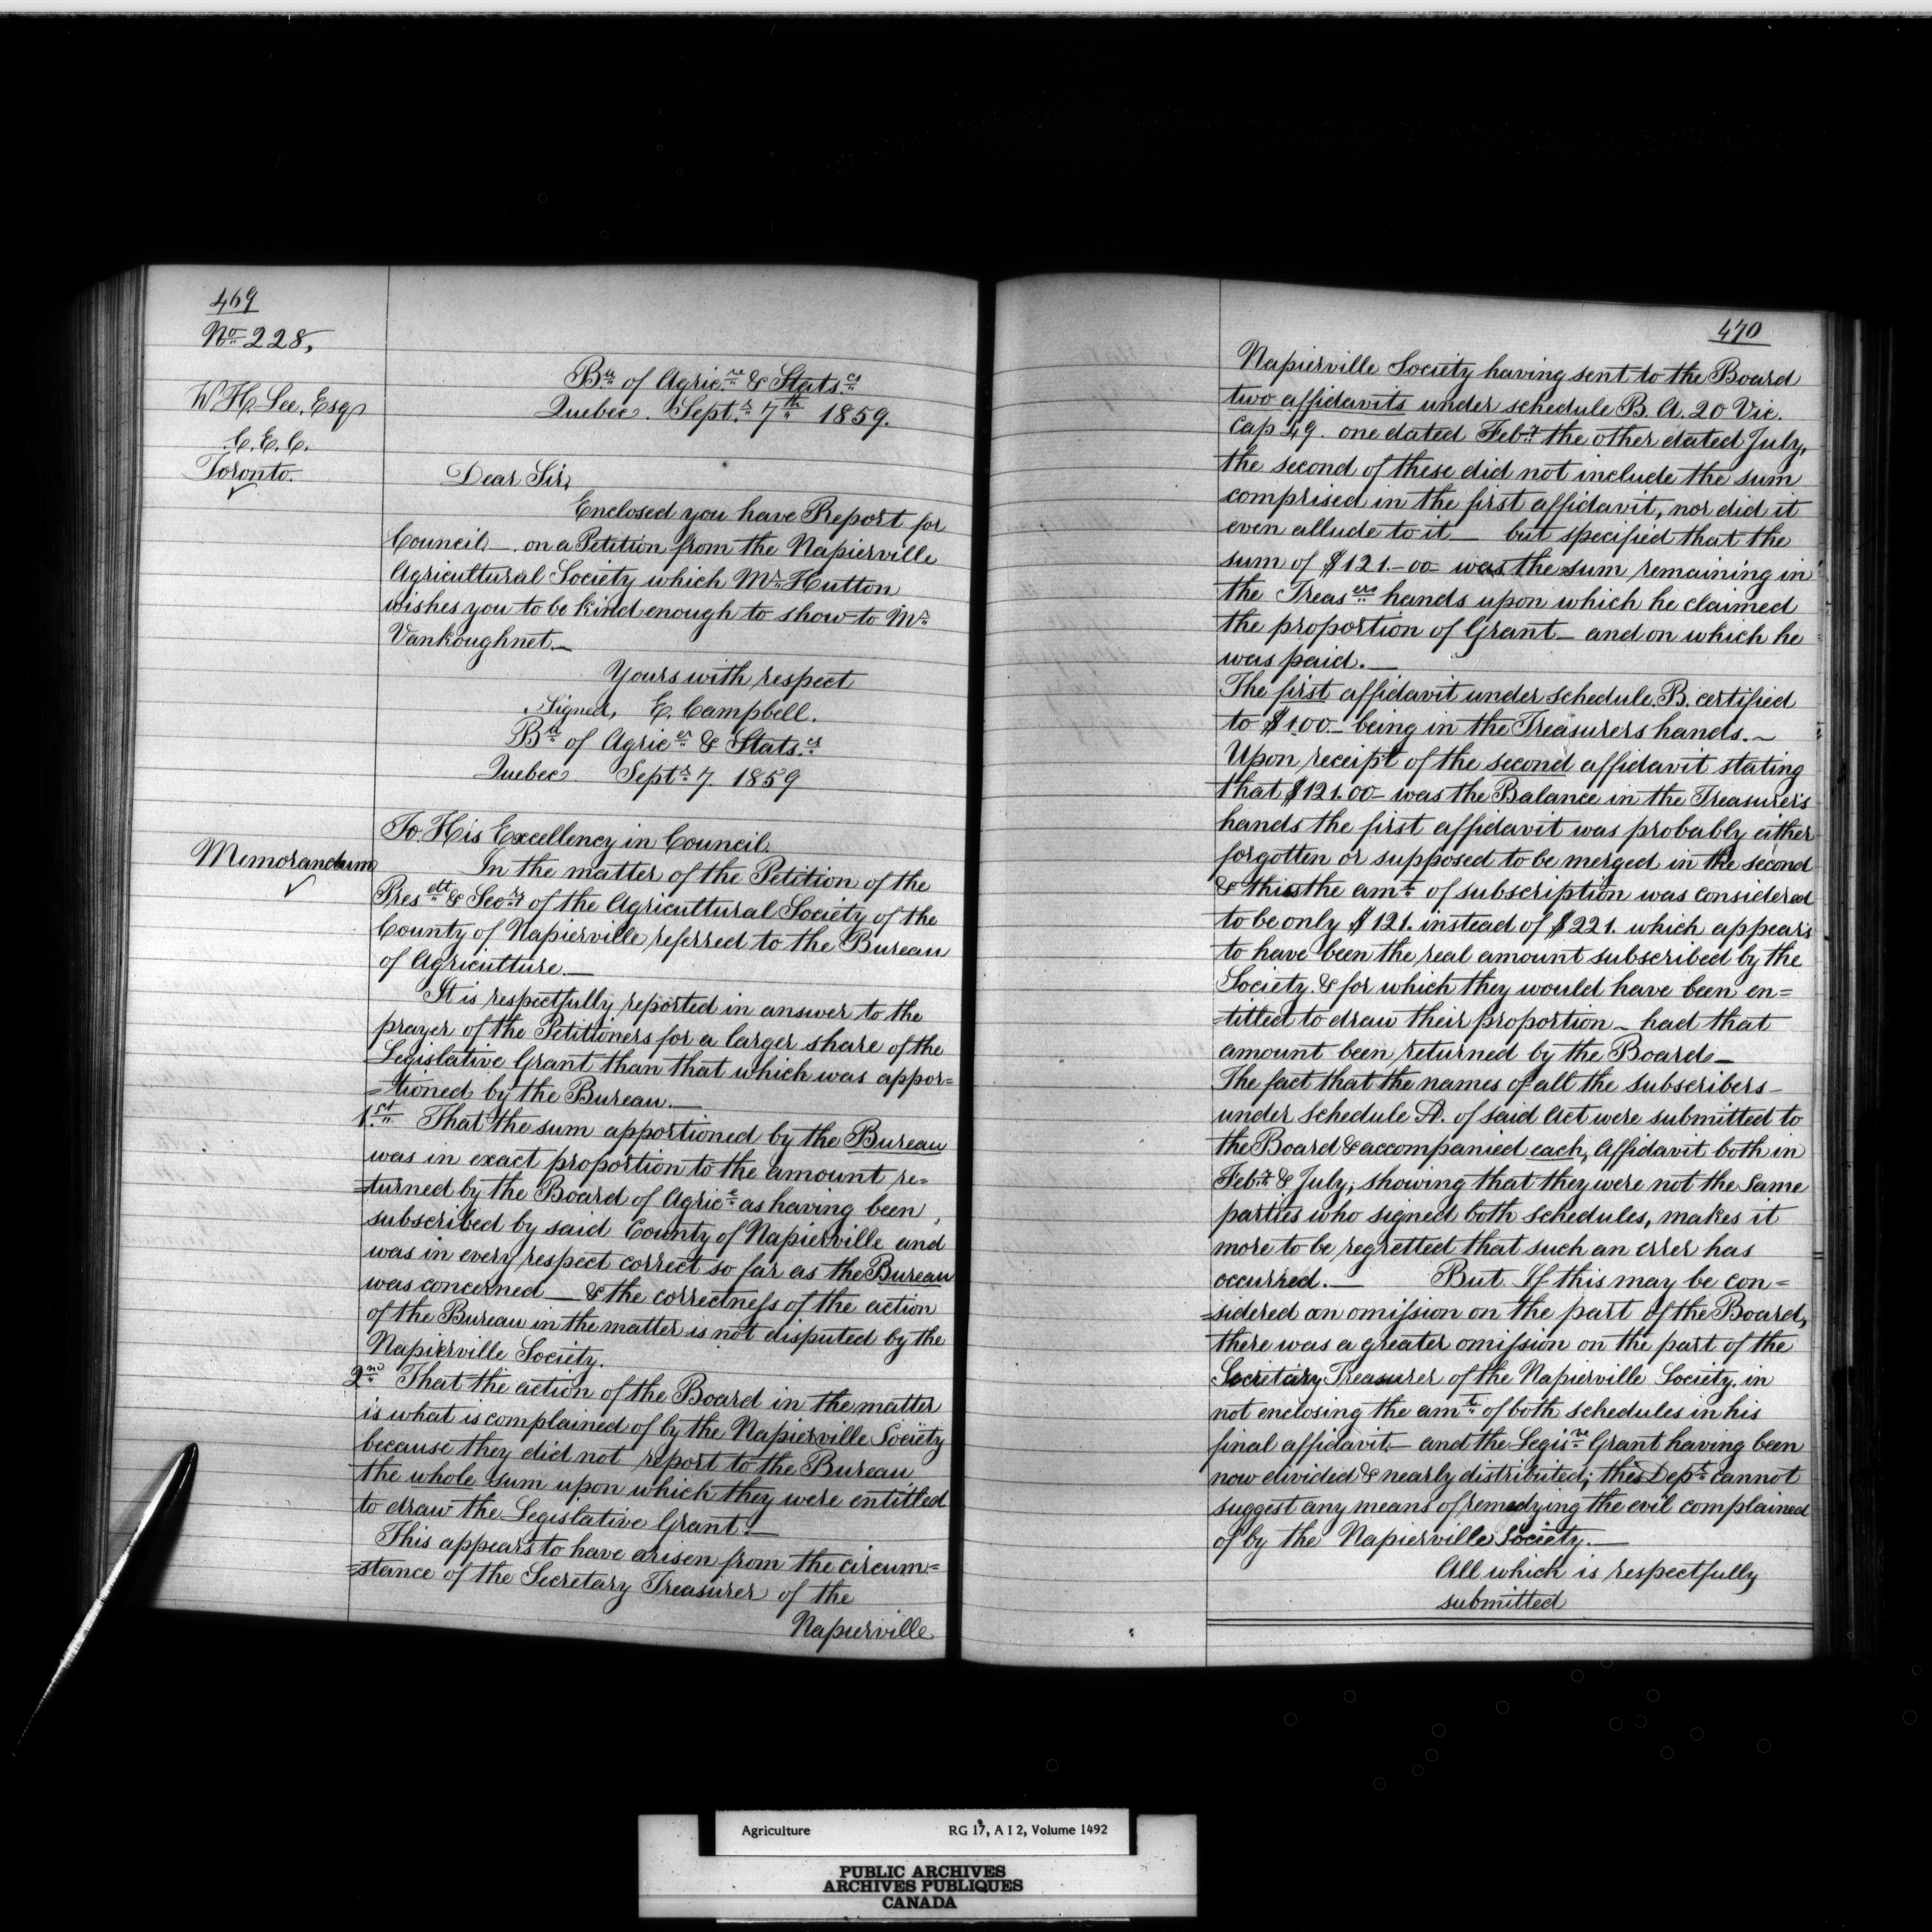 469
No 228,
W H Lee, Esq
C. E. C.
Toronto.
Bu of Agricre & Statscs
Quebec. Septr 7th 1859.
Dear Sir,
Enclosed you have Report for
Council — on a Petition from the Napierville
Agricultural Society which Mr Hutton
wishes you to be kind enough to show to Mr
Vankoughnet —
Yours with respect
Signed, E. Campbell.
Bu of Agricer & Statscs
Quebec. Septr 7. 1859
Memorandum
To His Excellency in Council.
In the matter of the Petition of the
Presdtt & Secry of the Agricultural Society of the
County of Napierville referred to the Bureau
of Agriculture. —
It is respectfully reported in answer to the
prayer of the Petitioners for a larger share of the
Legislative Grant than that which was appor=
=tioned by the Bureau. —
1st That the sum apportioned by the Bureau
was in exact proportion to the amount re=
=turned by the Board of Agrice as having been
subscribed by said County of Napierville and
was in every respect correct so far as the Bureau
was concerned — & the correctness of the action
of the Bureau in the matter is not disputed by the
Napierville Society.
2nd That the action of the Board in the matter
is what is complained of by the Napierville Society
because they did not report to the Bureau
the whole sum upon which they were entitled
to draw the Legislative Grant. —
This appears to have arisen from the circum=
=stance of the Secretary Treasurer of the
Napierville
470
Napierville Society having sent to the Board
two affidavits under schedule B. A. 20 Vic.
Cap 49. one dated Feby the other dated July,
the second of these did not include the sum
comprised in the first affidavit, nor did it
even allude to it — but specified that the
sum of $121.-00 was the sum remaining in
the Treasers hands upon which he claimed
the proportion of Grant — and on which he
was paid. —
The first affidavit under schedule B. certified
to $100 — being in the Treasurers hands. ~
Upon receipt of the second affidavit stating
that $121.00 — was the Balance in the Treasurer's
hands the first affidavit was probably either
forgotten or supposed to be merged in the second
& this the amt of subscription was considered
to be only $121. instead of $221. which appears
to have been the real amount subscribed by the
Society. & for which they would have been en=
=titled to draw their proportion — had that
amount been returned by the Board —
The fact that the names of all the subscribers —
under schedule A. of said Act were submitted to
the Board & accompanied each, Affidavit both in
Feby & July, showing that they were not the same
parties who signed both schedules, makes it
more to be regretted that such an error has
occurred. — But If this may be con=
=sidered an omission on the part of the Board,
there was a greater omission on the part of the
Secretary Treasurer of the Napierville Society, in
not enclosing the amt of both schedules in his
final affidavit — and the Legisve Grant having been
now divided & nearly distributed; this Dept cannot
suggest any means of remedying the evil complained
of by the Napierville Society. —
All which is respectfully
submitted
Agriculture RG 17, A I 2, Volume 1492
PUBLIC ARCHIVES
ARCHIVES PUBLIQUES
CANADA